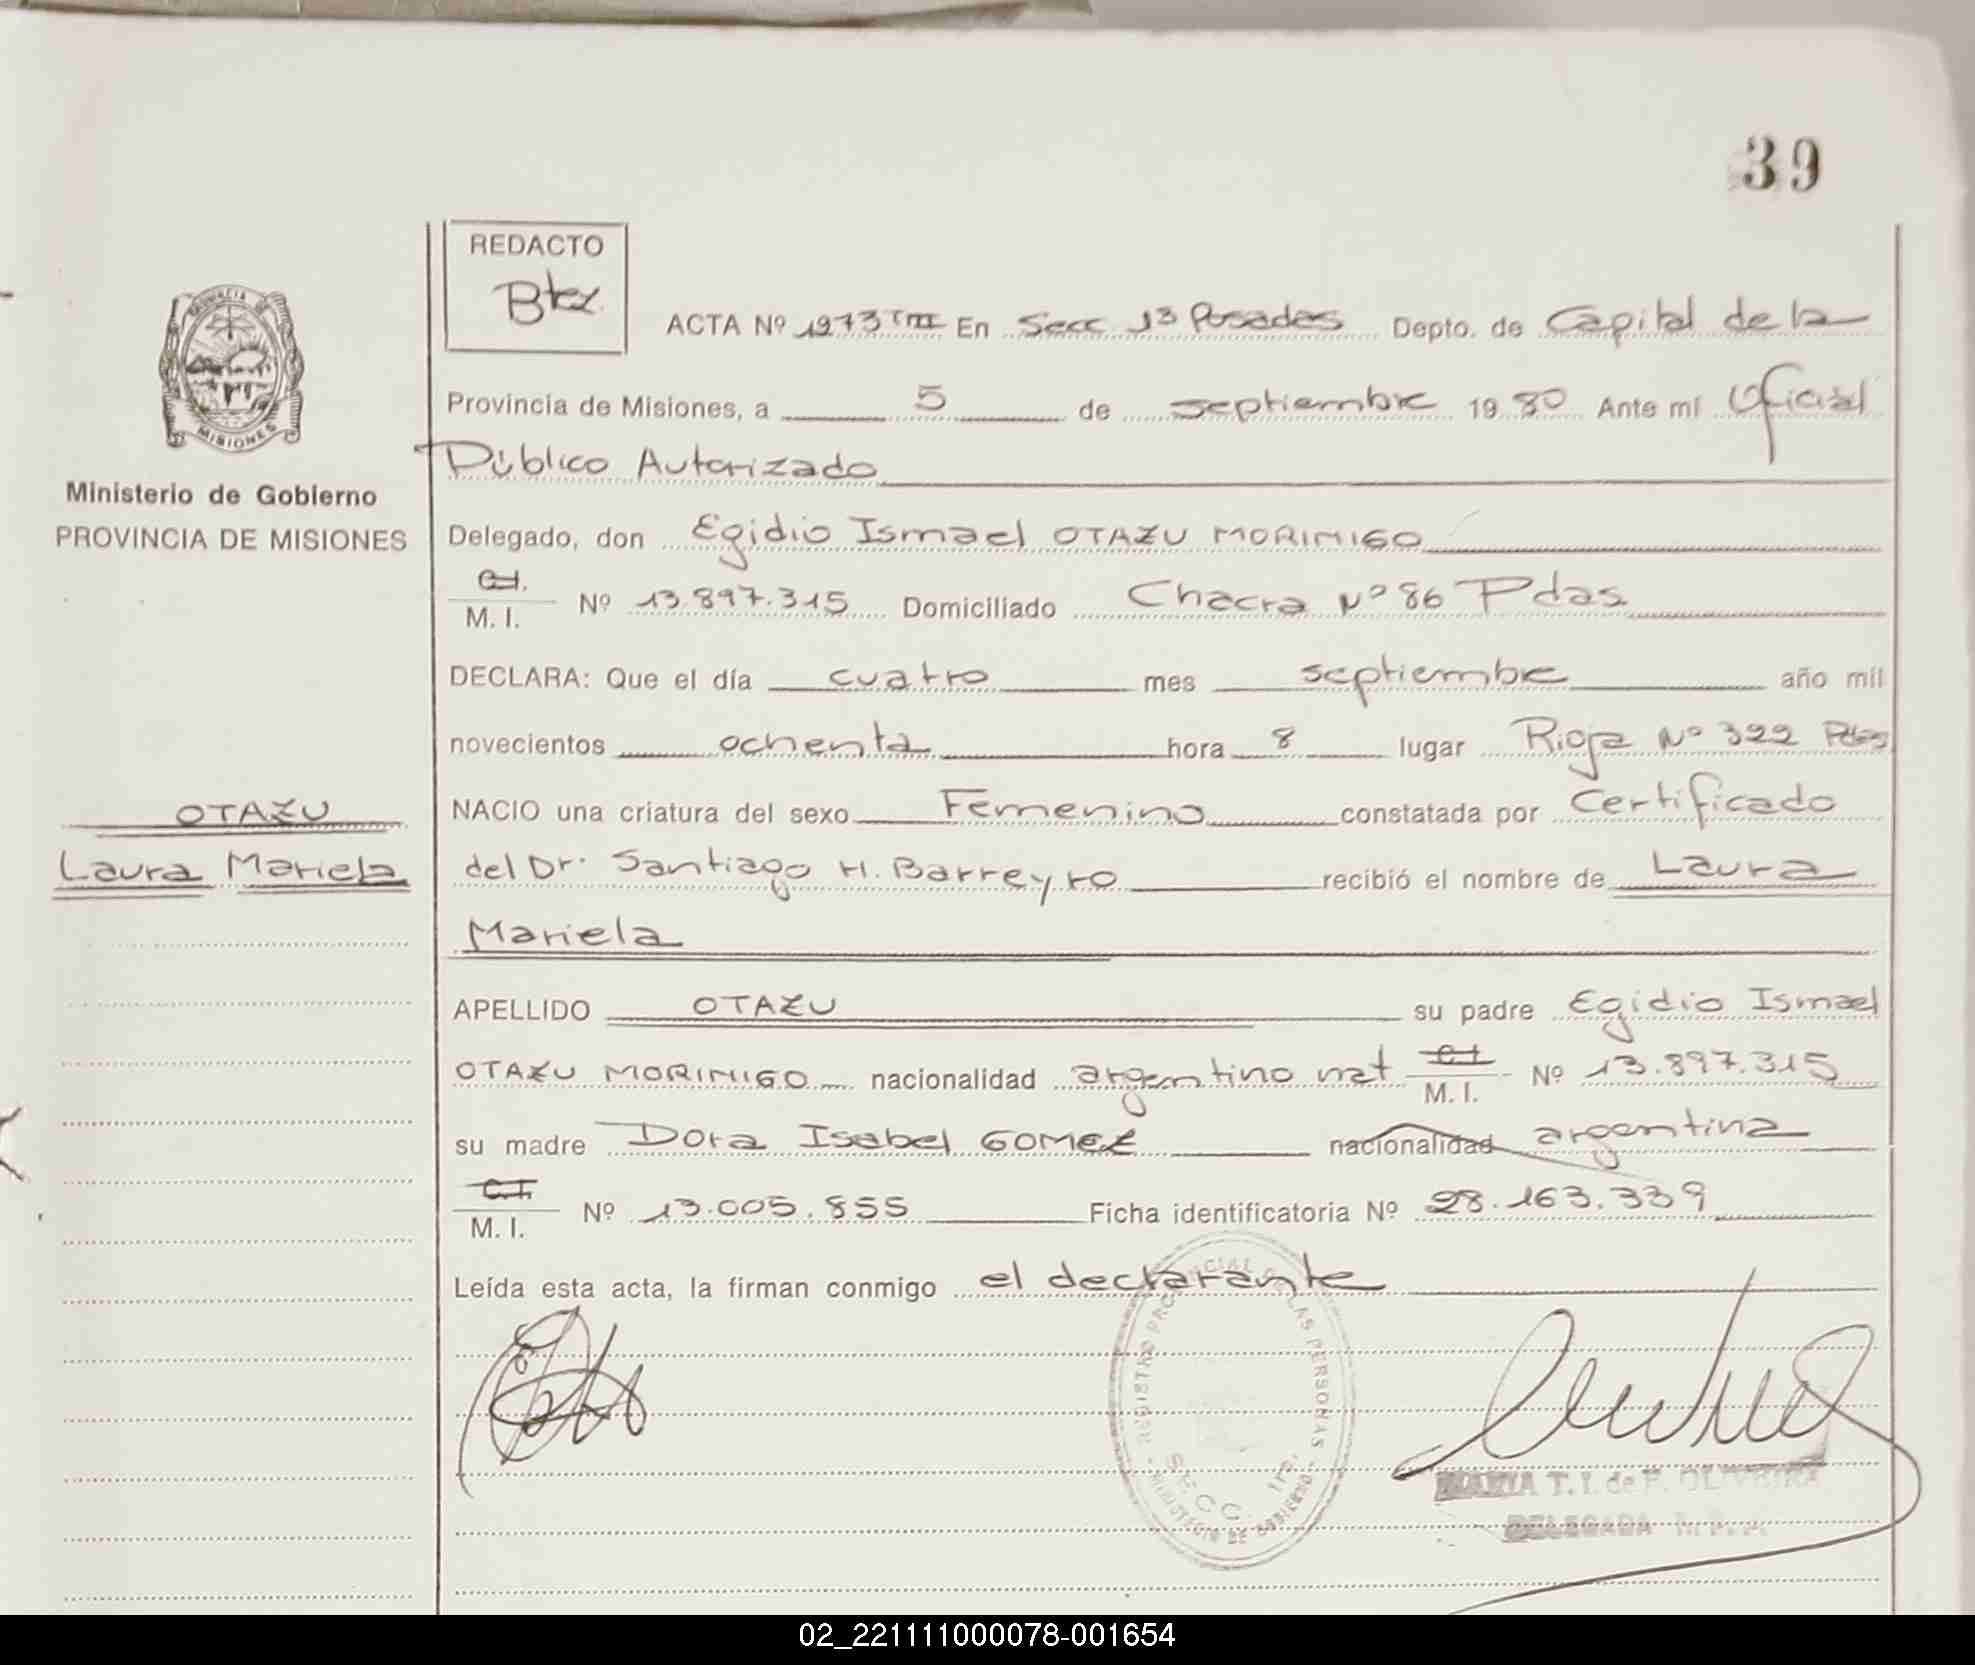 39
REDACTO
Btez.
ACTA Nº 1973 TIII En Secc 1ª Posadas Depto. de Capital de la
Provincia de Misiones, a 5 de septiembre 19 80 Ante mí Oficial
Público Autorizado
Ministerio de Gobierno
PROVINCIA DE MISIONES
Delegado, don Egidio Ismael OTAZU MORINIGO
C.I.
M. I. Nº 13.897.315 Domiciliado Chacra Nº 86 Pdas.
DECLARA: Que el día cuatro mes septiembre año mil
novecientos ochenta hora 8 lugar Rioja Nº 322 Pdas
OTAZU
Laura Mariela
NACIO una criatura del sexo Femenino constatada por Certificado
del Dr. Santiago H. Barreyro recibió el nombre de Laura
Mariela
APELLIDO OTAZU su padre Egidio Ismael
OTAZU MORINIGO nacionalidad argentino nat C.I. M. I. Nº 13.897.315
su madre Dora Isabel GOMEZ nacionalidad argentina
C.I.
M. I. Nº 13.005.855 Ficha identificatoria Nº 28.163.339
Leída esta acta, la firman conmigo el declarante
REGISTRO PROVINCIAL DE LAS PERSONAS
SECC. 1ra.
MINISTERIO DE GOBIERNO
MARIA T. I. de F. OLIVEIRA
DELEGADA R. P. P.
02_221111000078-001654